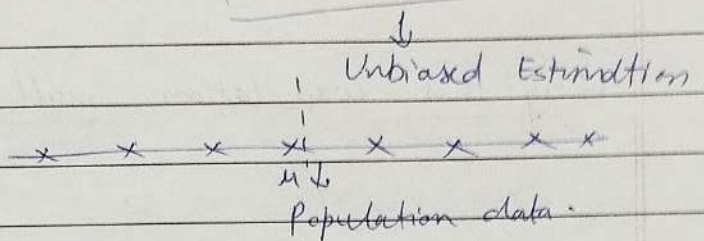 ↓
Unbiased Estimation
x x x x x x x x
μ ↓
Population data.